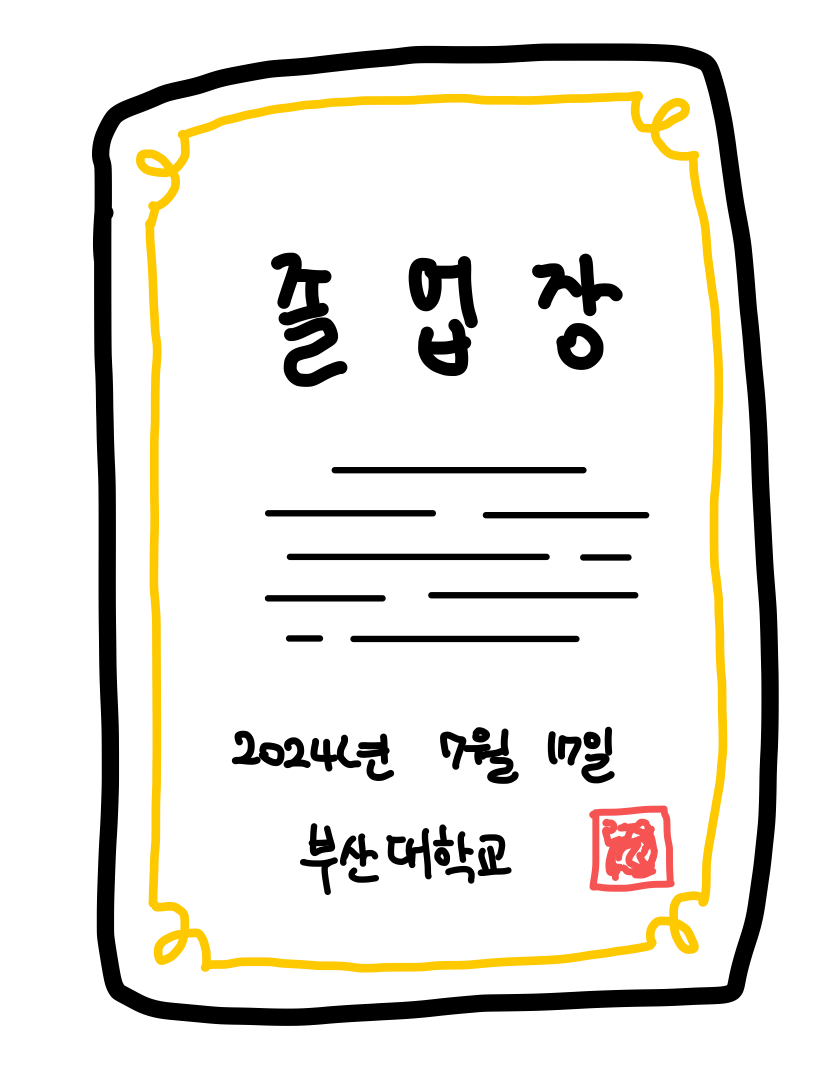 졸 업 장
2024년 7월 17일
부산대학교